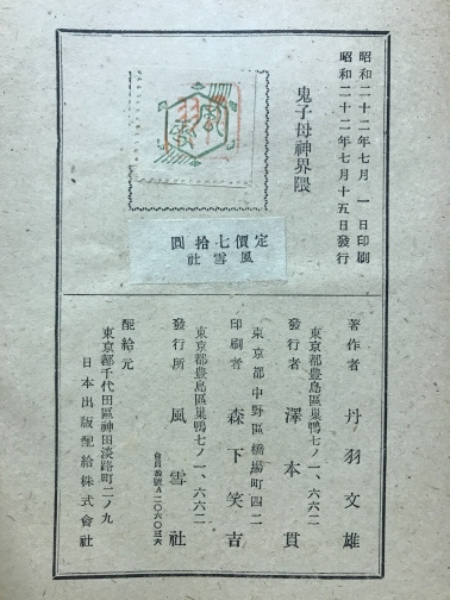 昭和二十二年七月 一 日印刷
昭和二十二年七月十五日發行
鬼子母神界隈
風雪
定價七拾圓
風雪社
著作者 丹羽文雄
東京都豊島區巣鴨七ノ一、六六二
發行者 澤本貫
東京都中野區橋場町四二
印刷者 森下笑吉
東京都豊島區巣鴨七ノ一、六六二
發行所 風雪社
會員番號A二〇六〇三六
配給元
東京都千代田區神田淡路町二ノ九
日本出版配給株式會社